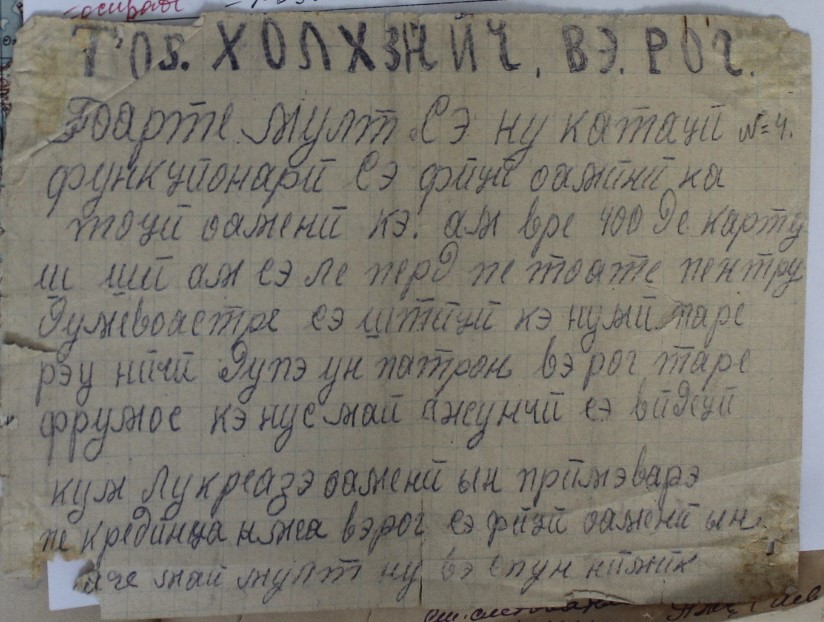 осирая
Тов. ХОЛХЗНЙЧ, ВЭ. РОГ.
Фоарте мулт Сэ ну катацй №=4.
функцйонарй Сэ фйцй оаменй ка
тоцй оаменй кэ. ам вре 400 Де карту
ш шй ам сэ ле перд пе тоате пентру
Думевоастре сэ штйцй кэ нумй паре
рэу нйчй Дупэ ун патрон вэ рог таре
фрумос кэ нус май ажунчй сэ вйДецй
кум лукреазэ оаменй ын прймэварэ
пе крединца мэа вэрог сэ фйцй оаменй ын
аче май мулт ну вэ спун нймйк